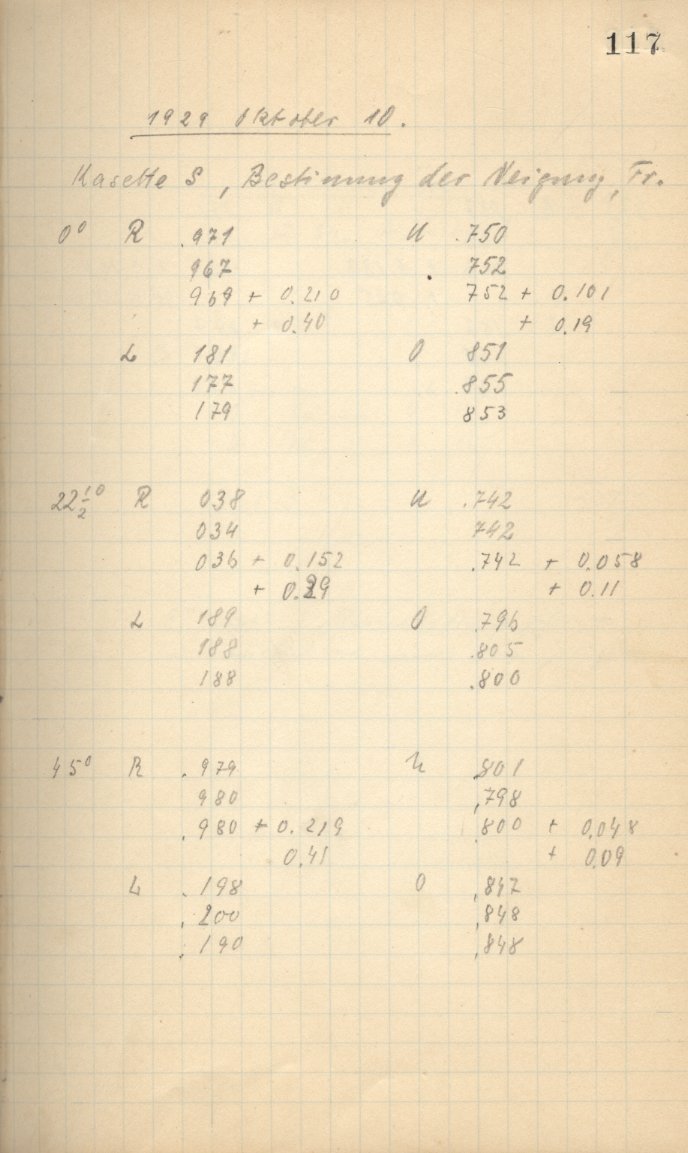 117
1929 Oktober 10.
Kasette S, Bestimmung der Neigung, Fr.
0° R .971 U .750
967 752
969 + 0.210 752 + 0.101
+ 0.40 + 0.19
L 181 O 851
177 .855
179 853
22½° R 038 U .742
034 742
036 + 0.152 .742 + 0.058
+ 0.29 + 0.11
L 189 O .796
188 .805
188 .800
45° R .979 U .801
980 .798
.980 + 0.219 800 + 0.048
0.41 + 0.09
L .198 O .847
.200 .848
.190 .848